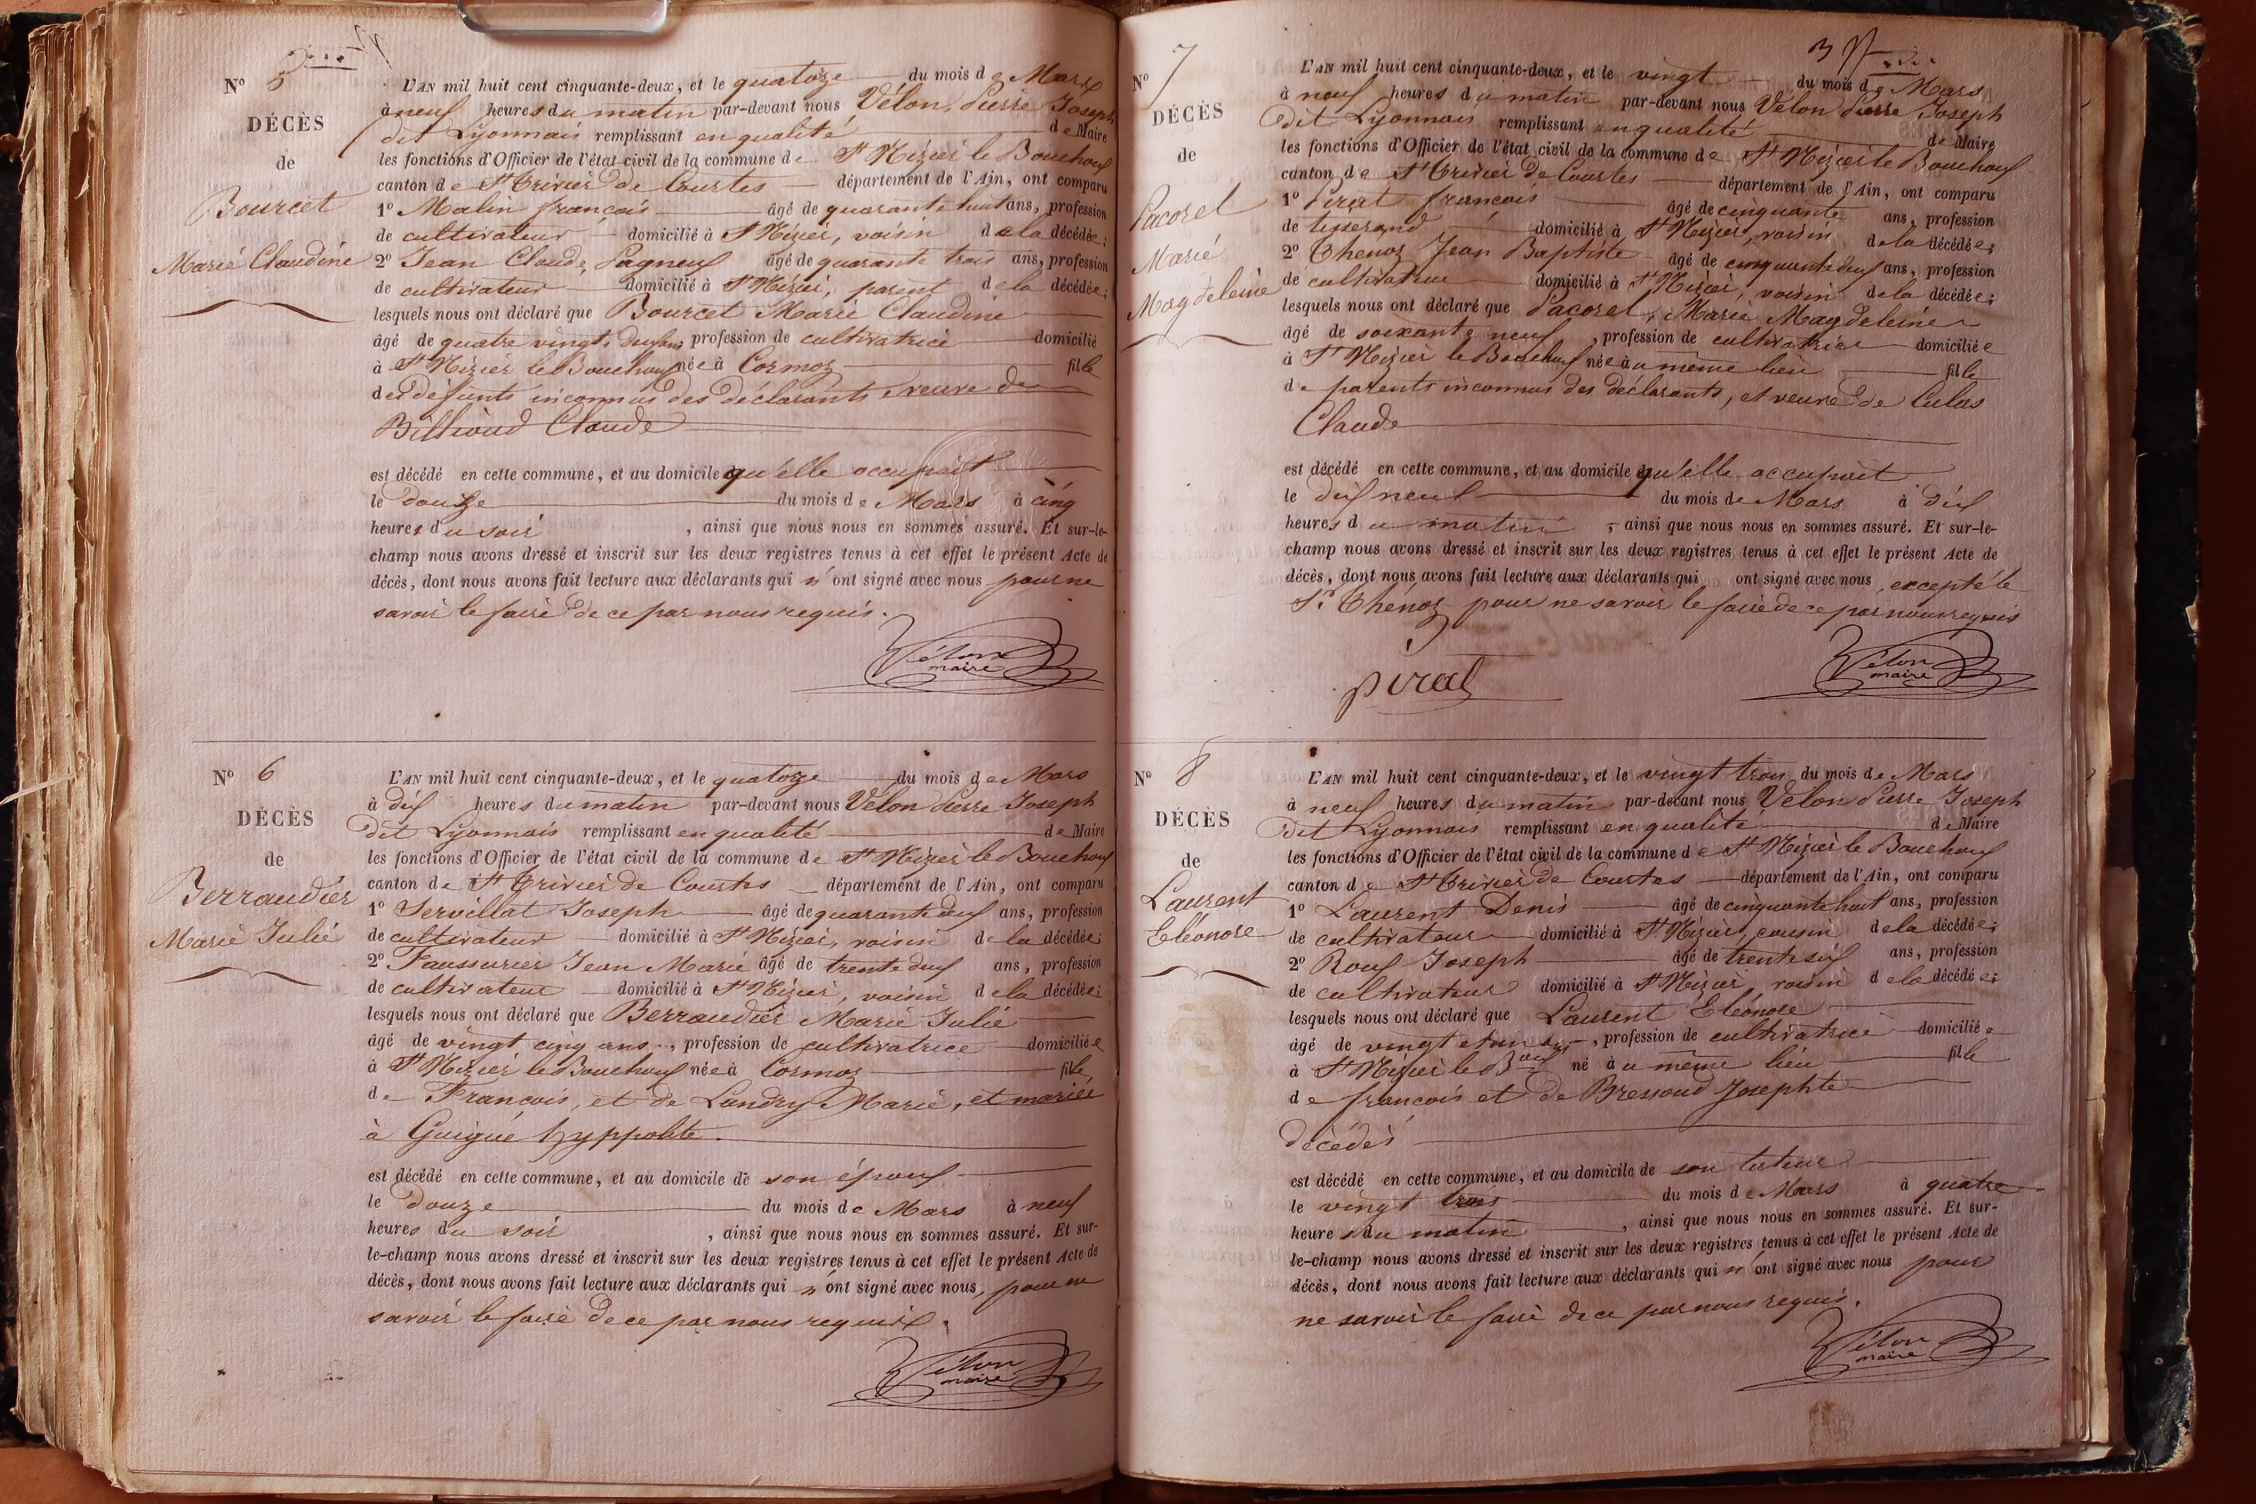 N° 5
DÉCÈS
de
Bourcet
Marie Claudine
L'AN mil huit cent cinquante-deux, et le quatorze du mois de Mars
à neuf heures du matin par-devant nous Vélon, Pierre Joseph
dit Lyonnais remplissant en qualité de Maire
les fonctions d'Officier de l'état civil de la commune de St Nizier le Bouchoux
canton de St Trivier de Courtes département de l'Ain, ont comparu
1° Malin françois âgé de quarante huit ans, profession
de cultivateur domicilié à St Nizier, voisin de la décédée;
2° Jean Claude Pagneux âgé de quarante trois ans, profession
de cultivateur domicilié à St Nizier, parent de la décédée;
lesquels nous ont déclaré que Bourcet Marie Claudine
âgé de quatre vingt deux ans profession de cultivatrice domicilié
à St Nizier le Bouchoux née à Cormoz fille
des défunts inconnus des déclarants, veuve de
Billioud Claude
est décédé en cette commune, et au domicile qu'elle occupait
le douze du mois de Mars à cinq
heures du soir, ainsi que nous nous en sommes assuré. Et sur-le-
champ nous avons dressé et inscrit sur les deux registres tenus à cet effet le présent Acte de
décès, dont nous avons fait lecture aux déclarants qui n'ont signé avec nous pour ne
savoir le faire de ce par nous requis.
Vélon
maire
N° 6
DÉCÈS
de
Berraudier
Marie Julie
L'AN mil huit cent cinquante-deux, et le quatorze du mois de Mars
à dix heures du matin par-devant nous Vélon Pierre Joseph
dit Lyonnais remplissant en qualité de Maire
les fonctions d'Officier de l'état civil de la commune de St Nizier le Bouchoux
canton de St Trivier de Courtes département de l'Ain, ont comparu
1° Servillat Joseph âgé de quarante deux ans, profession
de cultivateur domicilié à St Nizier, voisin de la décédée;
2° Faussurier Jean Marie âgé de trente deux ans, profession
de cultivateur domicilié à St Nizier, voisin de la décédée;
lesquels nous ont déclaré que Berraudier Marie Julie
âgé de vingt cinq ans, profession de cultivatrice domiciliée
à St Nizier le Bouchoux née à Cormoz fille
de François, et de Landry Marie, et mariée
à Guigue hyppolite.
est décédé en cette commune, et au domicile de son époux
le douze du mois de Mars à neuf
heures du soir, ainsi que nous nous en sommes assuré. Et sur-
le-champ nous avons dressé et inscrit sur les deux registres tenus à cet effet le présent Acte de
décès, dont nous avons fait lecture aux déclarants qui n'ont signé avec nous, pour ne
savoir le faire de ce par nous requis.
Vélon
maire
N° 7
DÉCÈS
de
Pacorel
Marie
Magdeleine
L'AN mil huit cent cinquante-deux, et le vingt du mois de Mars
à neuf heures du matin par-devant nous Vélon Pierre Joseph
dit Lyonnais remplissant en qualité de Maire
les fonctions d'Officier de l'état civil de la commune de St Nizier le Bouchoux
canton de St Trivier de Courtes département de l'Ain, ont comparu
1° Pirat françois âgé de cinquante ans, profession
de tisserand domicilié à St Nizier, voisin de la décédée;
2° Thenoz Jean Baptiste âgé de cinquante deux ans, profession
de cultivateur domicilié à St Nizier, voisin de la décédée;
lesquels nous ont déclaré que Pacorel, Marie Magdeleine
âgé de soixante neuf, profession de cultivatrice domiciliée
à St Nizier le Bouchoux née au même lieu fille
de parents inconnus des déclarants, et veuve de Culas
Claude
est décédé en cette commune, et au domicile qu'elle occupait
le dix neuf du mois de Mars à dix
heures du matin, ainsi que nous nous en sommes assuré. Et sur-le-
champ nous avons dressé et inscrit sur les deux registres tenus à cet effet le présent Acte de
décès, dont nous avons fait lecture aux déclarants qui ont signé avec nous, excepté le
Sr Thénoz pour ne savoir le faire de ce par nous requis
pirat
Vélon
maire
N° 8
DÉCÈS
de
Laurent
Eléonore
L'AN mil huit cent cinquante-deux, et le vingt trois du mois de Mars
à neuf heures du matin par-devant nous Vélon Pierre Joseph
dit Lyonnais remplissant en qualité de Maire
les fonctions d'Officier de l'état civil de la commune de St Nizier le Bouchoux
canton de St Trivier de Courtes département de l'Ain, ont comparu
1° Laurent Denis âgé de cinquante huit ans, profession
de cultivateur domicilié à St Nizier, cousin de la décédée;
2° Roux Joseph âgé de trente six ans, profession
de cultivateur domicilié à St Nizier, voisin de la décédée;
lesquels nous ont déclaré que Laurent Eléonore
âgé de vingt et un ans, profession de cultivatrice domiciliée
à St Nizier le Boux né au même lieu fille
de françois et de Bressoud Josephte
décédés
est décédé en cette commune, et au domicile de son tuteur
le vingt trois du mois de Mars à quatre
heures du matin, ainsi que nous nous en sommes assuré. Et sur-
le-champ nous avons dressé et inscrit sur les deux registres tenus à cet effet le présent Acte de
décès, dont nous avons fait lecture aux déclarants qui n'ont signé avec nous pour
ne savoir le faire de ce par nous requis.
Vélon
maire